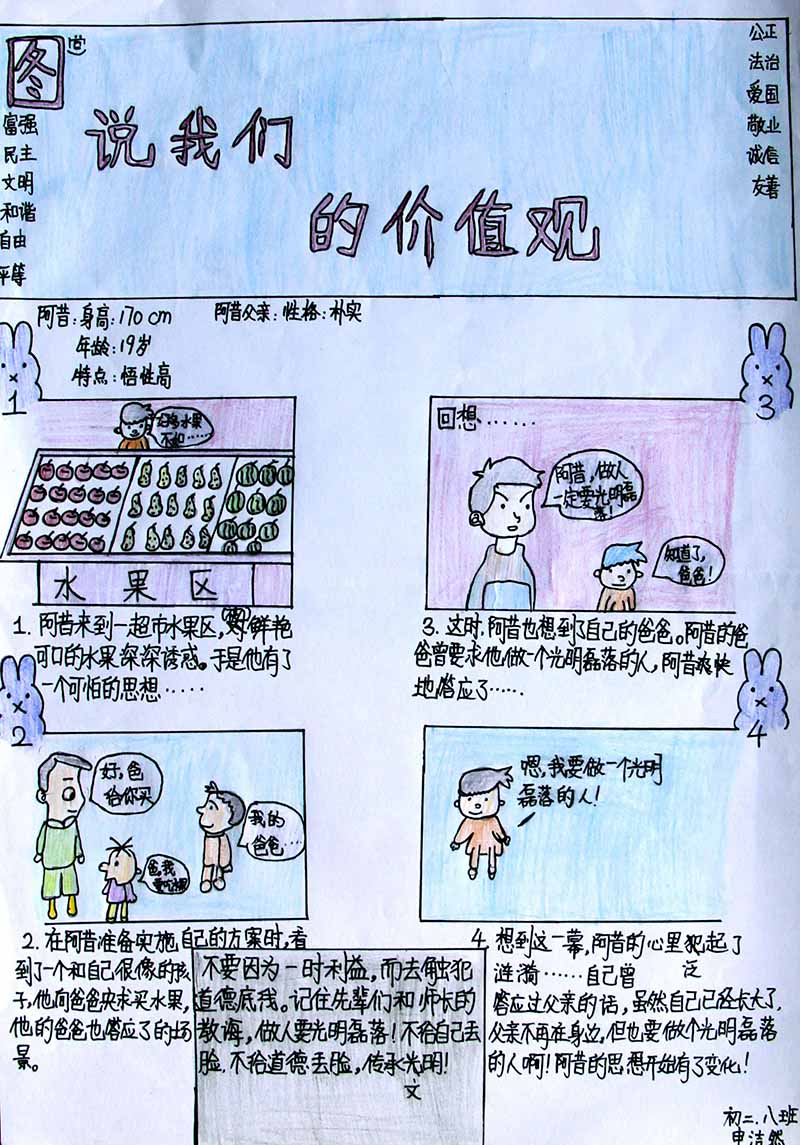 图
说我们
的价值观
富强
民主
文明
和谐
自由
平等
公正
法治
爱国
敬业
诚信
友善
阿昔:身高:170cm
年龄:19岁
特点:悟性高
阿昔父亲:性格:朴实
1
好多水果
不如…
水果区
1. 阿昔来到一超市水果区,被鲜艳
可口的水果深深诱惑。于是他有了
一个可怕的思想……
2
好,爸
给你买
爸,我
要吃
我的
爸爸…
2. 在阿昔准备实施自己的方案时,看
到了一个和自己很像的孩
子,他向爸爸央求买水果,
他的爸爸也答应了的场
景。
3
回想……
阿昔,做人
一定要光明磊
落!
知道了,
爸爸!
3. 这时,阿昔也想到了自己的爸爸。阿昔的爸
爸曾要求他做一个光明磊落的人,阿昔爽快
地答应了……
4
嗯,我要做一个光明
磊落的人!
4. 想到这一幕,阿昔的心里犯起了
涟漪……自己曾 泛
答应过父亲的话,虽然自己已经长大了,
父亲不再在身边,但也要做个光明磊落
的人啊!阿昔的思想开始有了变化!
不要因为一时利益,而去触犯
道德底线。记住先辈们和师长的
教诲,做人要光明磊落!不给自己丢
脸,不给道德丢脸,传承光明!
文
初二.八班
申洁然